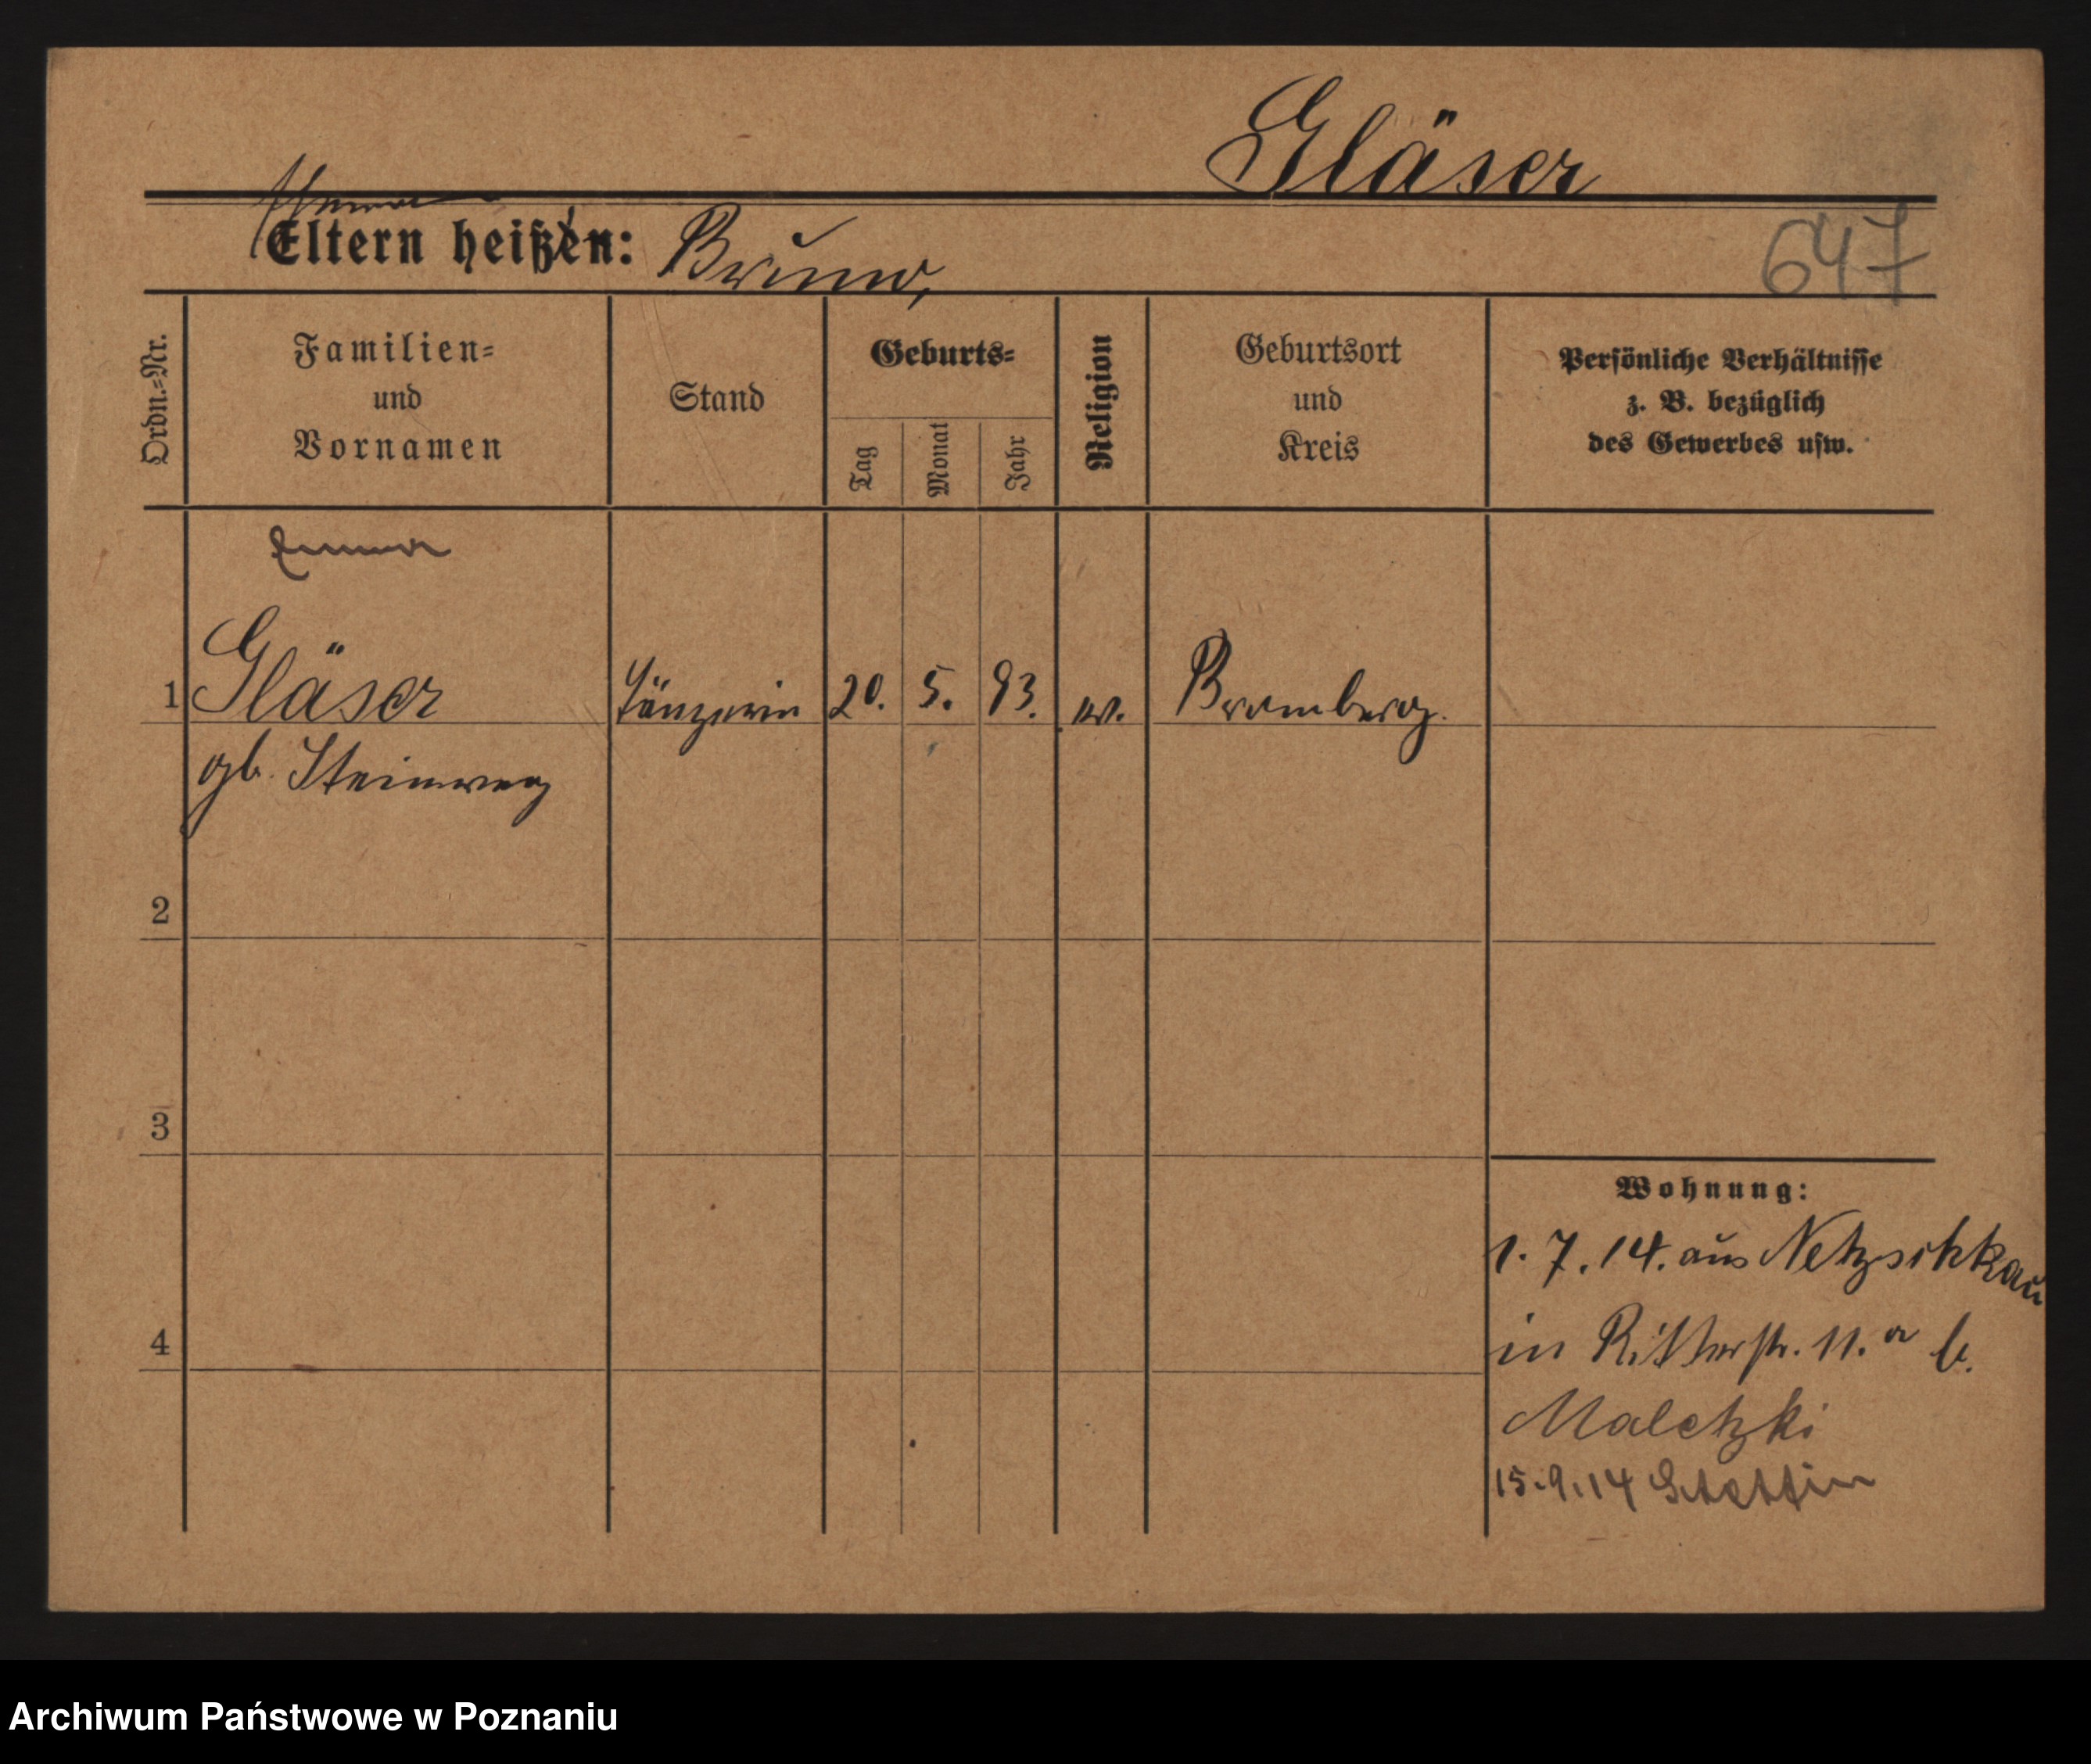 Gläser
Eltern heißen: Bruno,
647
Ordn.=Nr.
Familien=
und
Vornamen
Stand
Geburts=
Tag
Monat
Jahr
Religion
Geburtsort
und
Kreis
Persönliche Verhältnisse
z. B. bezüglich
des Gewerbes usw.
Emma
1 Gläser Tänzerin 20. 5. 93. ev. Bromberg.
gb. Steinweg
2
3
Wohnung:
1. 7. 14. aus Netzschkau
4
in Ritterstr. 11.a b.
Maletzki
15.9.14 Stettin
Archiwum Państwowe w Poznaniu